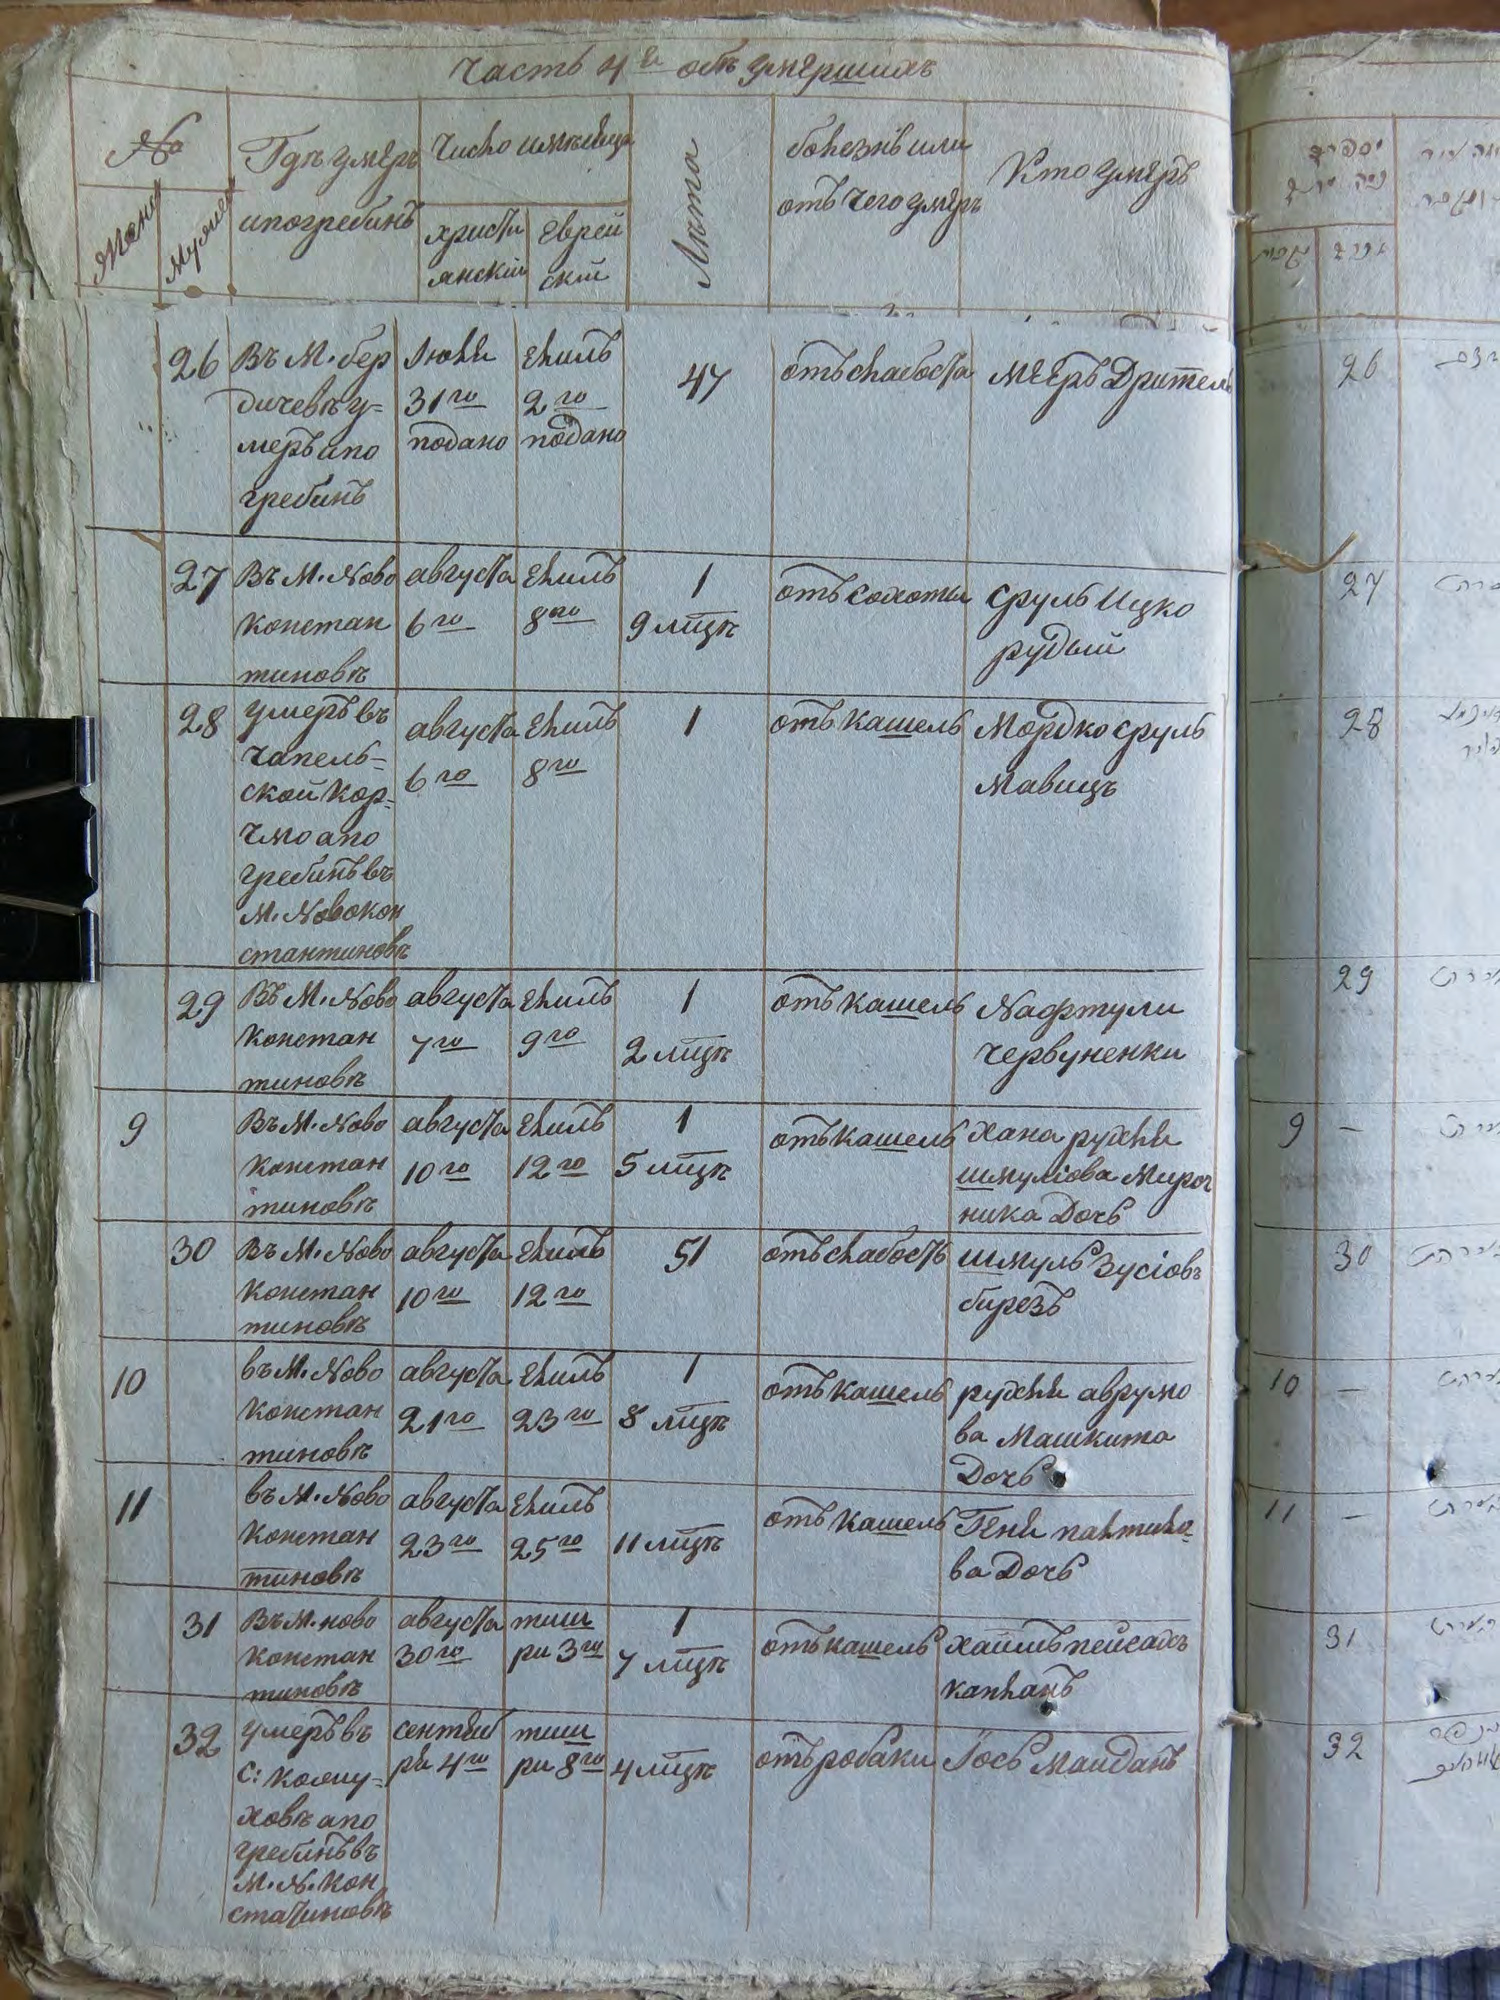 Часть 4я объ умершихъ
№
Жена
Мужеск
Гдѣ умеръ
и погребинъ
Число и мѣсяцъ
христи
янский
Еврей
ский
Лѣта
болезнь или
отъ чего умеръ
Кто умеръ
26 Въ М. бер
дичевѣ у=
меръ и по
гребинъ
Июля
31го
подано
Елюль
2го
подано
47
отъ слабости
Мееръ Дрител
27 Въ М. Ново
констан
тиновѣ
августа
6го
Елюль
8го
1
9 мцѣ
отъ сохоты
сруль Ицко
рудый
28 умеръ въ
чапель=
ской кор=
чмо а по
гребинъ въ
М. Новокон
стантиновѣ
августа
6го
Елюль
8го
1
отъ кашель
Мордко сруль
Мавицъ
29 Въ М. Ново
констан
тиновѣ
августа
7го
Елюль
9го
1
2 мцѣ
отъ кашель
Нафтули
червуненки
9 Въ М. Ново
констан
тиновѣ
августа
10го
Елюль
12го
1
5 мцѣ
отъ кашель
хана рухля
шмулiова Мироч
ника Дочь
30 Въ М. Ново
констан
тиновѣ
августа
10го
Елюль
12го
51
отъ слабость
шмуль Зусiовъ
бирезъ
10 въ М. Ново
констан
тиновѣ
августа
21го
Елюль
23го
1
8 мцѣ
отъ кашель
рухля аврумо
ва Машкита
Дочь
11 въ М. Ново
констан
тиновѣ
августа
23го
Елюль
25го
11 мцѣ
отъ кашель
Геня
ва Дочь
31 Въ М. ново
констан
тиновѣ
августа
30го
тиш
ри 3го
1
7 мцѣ
отъ кашель
хаимъ пейсахъ
капланъ
32 умеръ въ
с:
ховѣ а по
гребинъ въ
М. Н. кон
статиновѣ
сентяб
ря 4го
тиш
ри 8го
4 мцѣ
отъ робаки
Iось Маиданъ
26
27
28
29
9 —
30
10 —
11 —
31
32